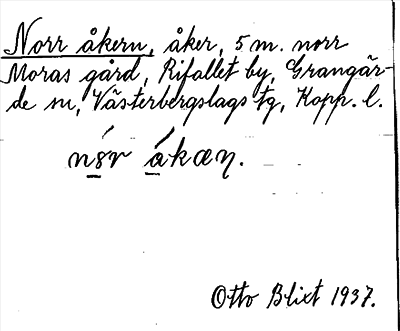 Norr åkern, åker, 5 m. norr
Moras gård, Rifallet by, Grangär-
de sn, Västerbergslags tg, Kopp. l.
Otto Blixt 1937.